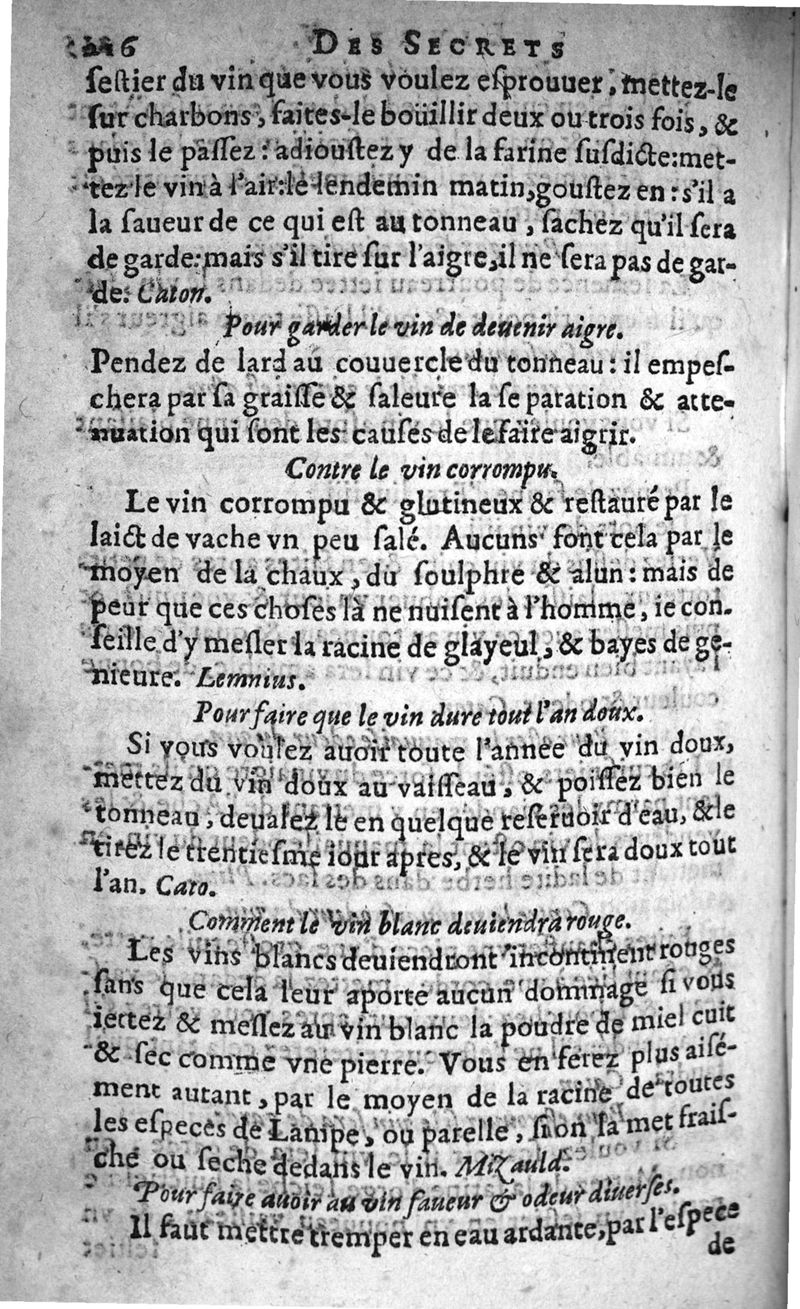 DES SECRETS
ſeſtier du vin que vous voulez eſprouuer, mettez-le
ſur charbons, faites-le boüillir deux ou trois fois, &
puis le paſſez: adiouſtez y de la farine ſuſdicte: met-
tez le vin à l'air: le lendemin matin, gouſtez en: s'il a
la ſaueur de ce qui eſt au tonneau, ſachez qu'il ſera
de garde: mais s'il tire ſur l'aigre, il ne ſera pas de gar-
de. Caton.
Pour garder le vin de deuenir aigre.
Pendez de lard au couuercle du tonneau: il empeſ-
chera par ſa graiſſe & ſaleure la ſe paration & atte-
nuation qui ſont les cauſes de le faire aigrir.
Contre le vin corrompu.
Le vin corrompu & glutineux & reſtauré par le
laict de vache vn peu ſalé. Aucuns font cela par le
moyen de la chaux, du ſoulphre & alun: mais de
peur que ces choſes là ne nuiſent à l'homme, ie con-
ſeille d'y meſler la racine de glayeul, & bayes de ge-
nieure. Lemnius.
Pour faire que le vin dure tout l'an doux.
Si vous voulez auoir toute l'année du vin doux,
mettez du vin doux au vaiſſeau, & poiſſez bien le
tonneau, deualez le en quelque reſeruoir d'eau, & le
tirez le trentieſme iour apres, & le vin ſera doux tout
l'an. Cato.
Comment le vin blanc deuiendra rouge.
Les vins blancs deuiendront incontinent rouges
ſans que cela leur aporte aucun dommage ſi vous
iettez & meſlez au vin blanc la poudre de miel cuit
& ſec comme vne pierre. Vous en ferez plus aiſé-
ment autant, par le moyen de la racine de toutes
les eſpeces de Lampe, ou parelle, ſi on la met fraiſ-
che ou ſeche dedans le vin. Mizauld.
Pour faire auoir au vin ſaueur & odeur diuerſes.
Il faut mettre tremper en eau ardante, par l'eſpece
de